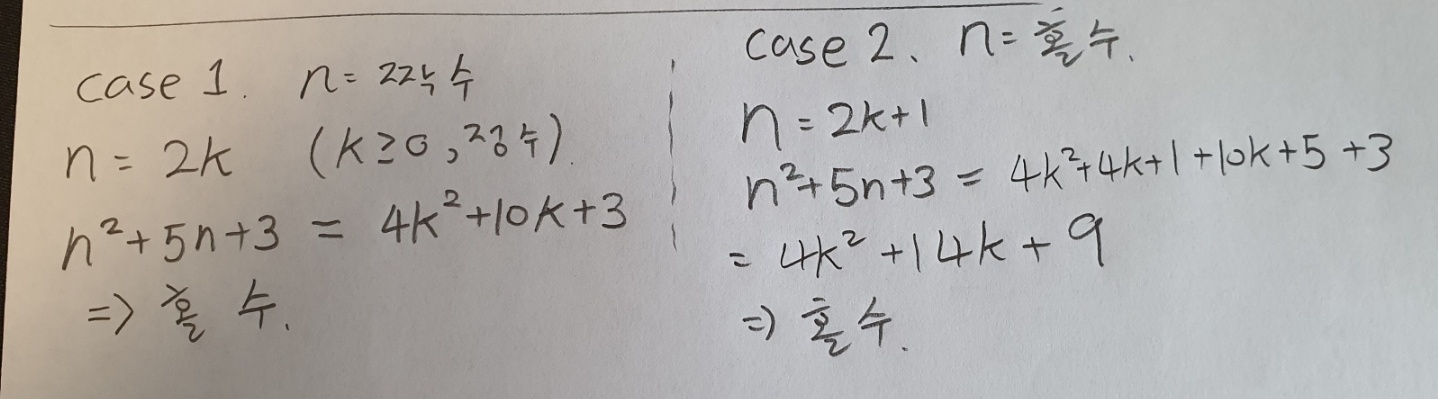 case 1. n = 짝수
n = 2k (k≥0, 정수).
n²+5n+3 = 4k²+10k+3
=> 홀수.
case 2. n = 홀수.
n = 2k+1
n²+5n+3 = 4k²+4k+1+10k+5+3
= 4k²+14k+9
=> 홀수.